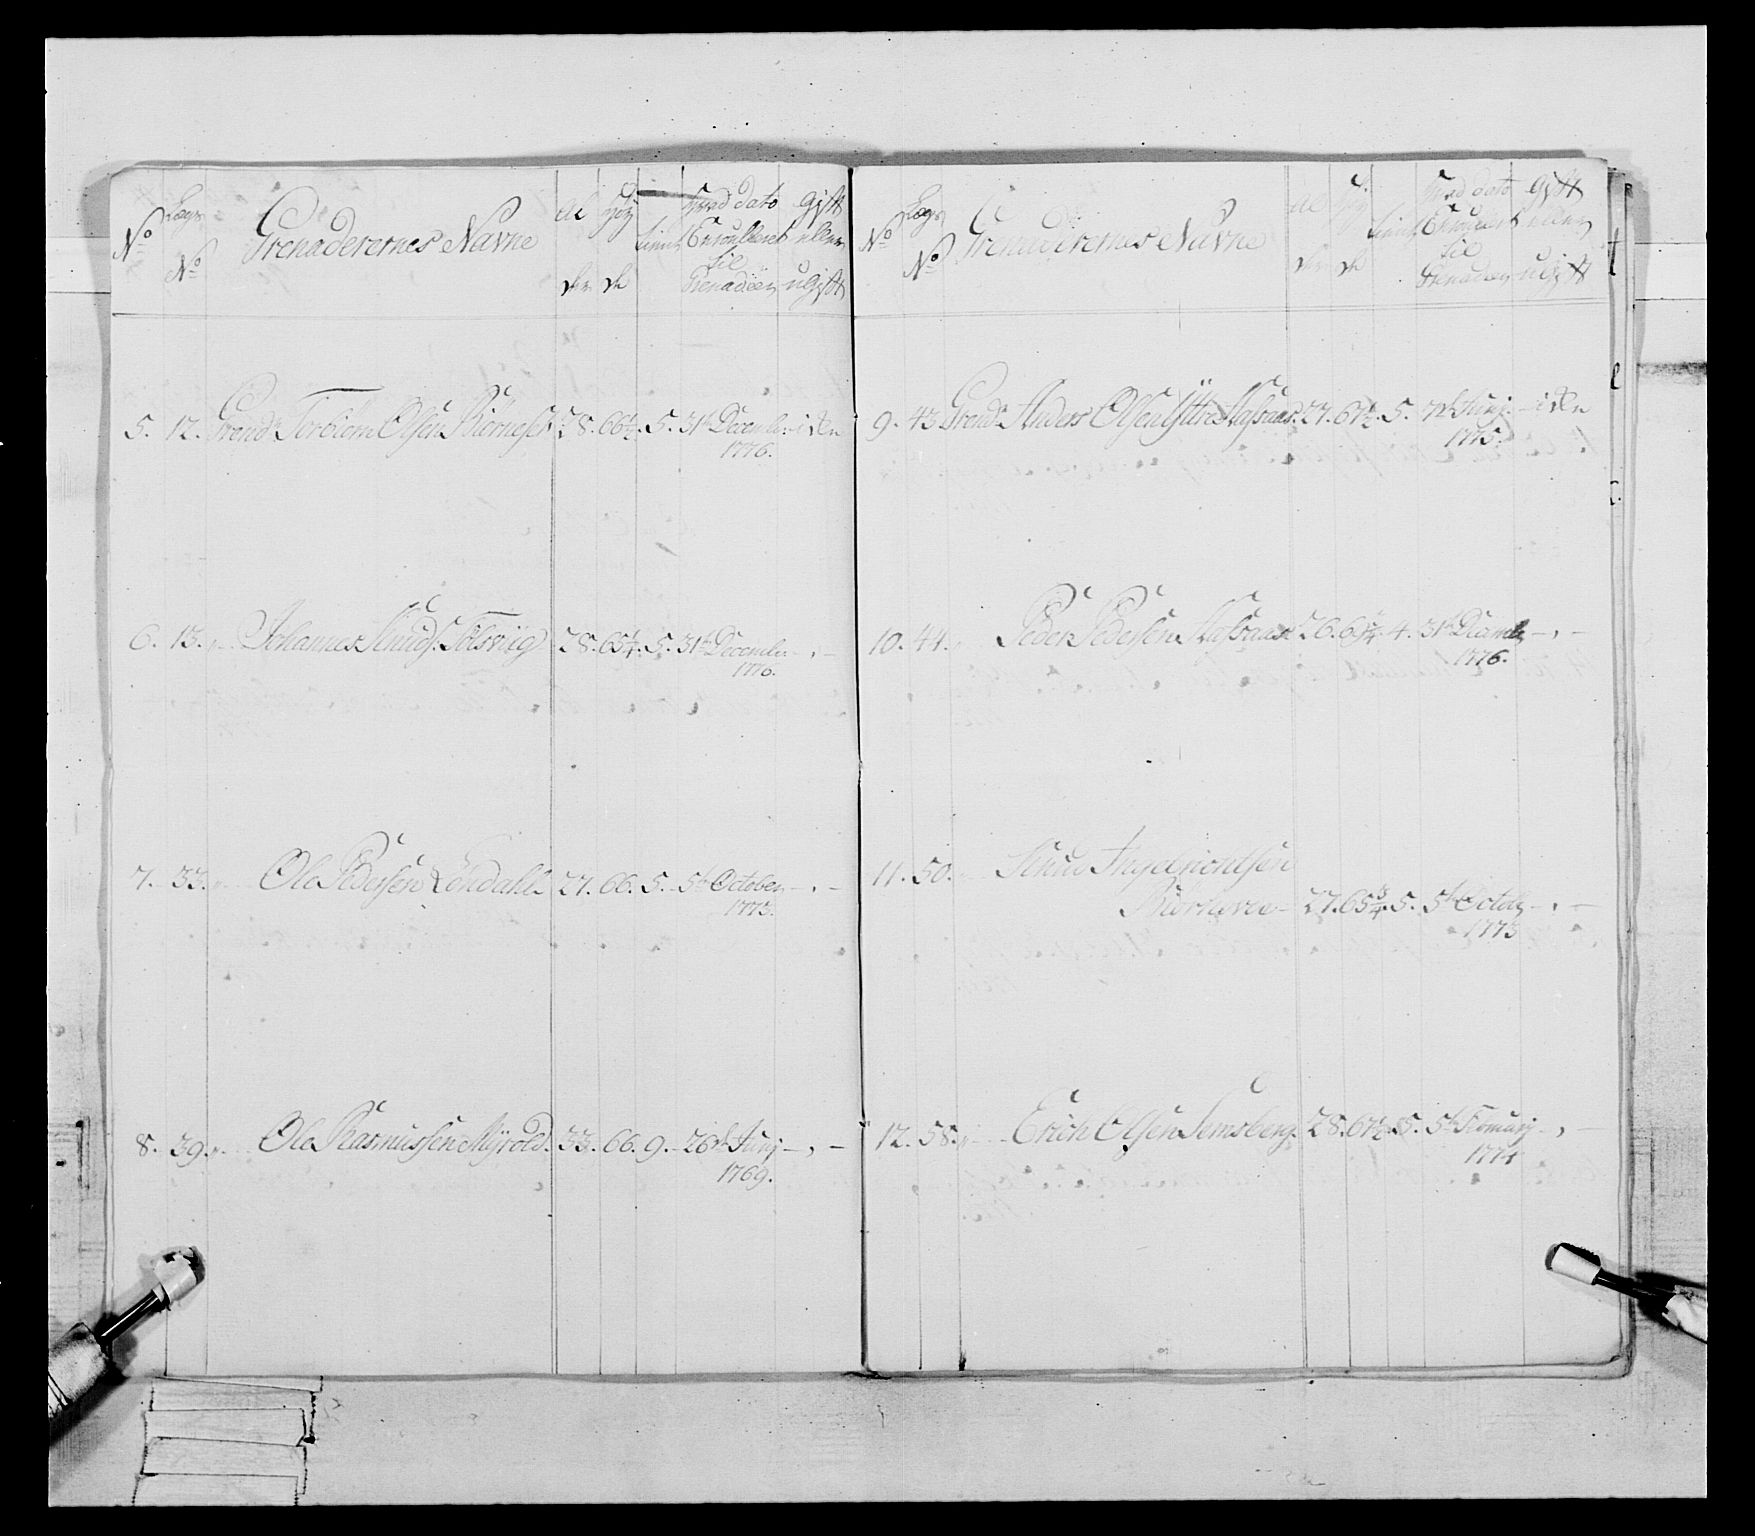 No Lægs No Grenaderernes Navne Al der Høy de Tient Hvad dato Enroulleret til Grenadeer Gift eller ugift
5. 12. Grendr Torbiörn Olsen Biörneset 28. 66½. 5. 31te Decembr. iden
1776.
6. 13. " Johannes Knuds. Tolsviig 28. 65¼. 5. 31te Decembr. - " -
1776.
7. 33. " Ole Pedersen Löndahl 27. 66. 5. 5te October - " -
1773.
8. 39. " Ole Rasmussen Myrold. 33. 66. 9. 26de Junj - " -
1769.
No Lægs No Grenaderernes Navne Al der Høy de Tient Hvad dato Enroulleret til Grenadeer Gift eller ugift
9. 43. Grendr Anders Olsen Ÿttre 27. 67½. 5. Junj. iden
1775.
10. 44. " Peder Pedersen 26. 4. 31te Decembr - " -
1776.
11. 50. " Knud Ingebrichtsen
27. 65¾. 5. 5te Octobr - " -
1773
12. 58. " Erich Olsen Semsberg. 28. 67½. 5. 5te - " -
1774